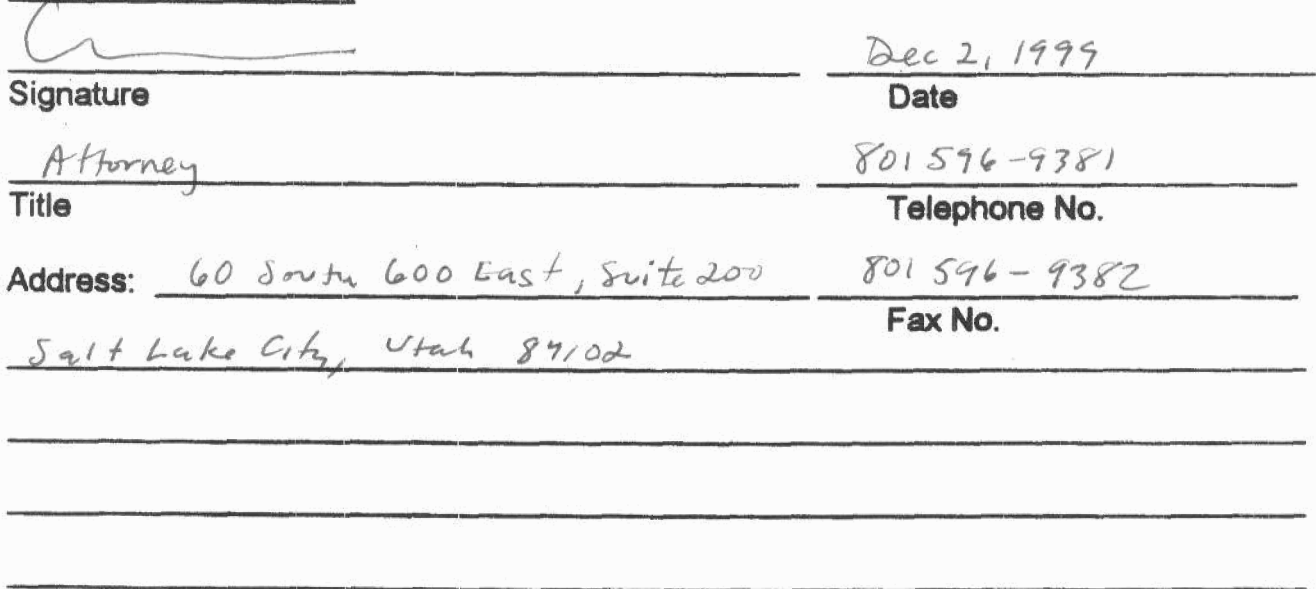 Dec 2, 1999
Signature Date
Attorney 801 596-9381
Title Telephone No.
Address: 60 South 600 East, Suite 200 801 596-9382
Fax No.
Salt Lake City, Utah 84102